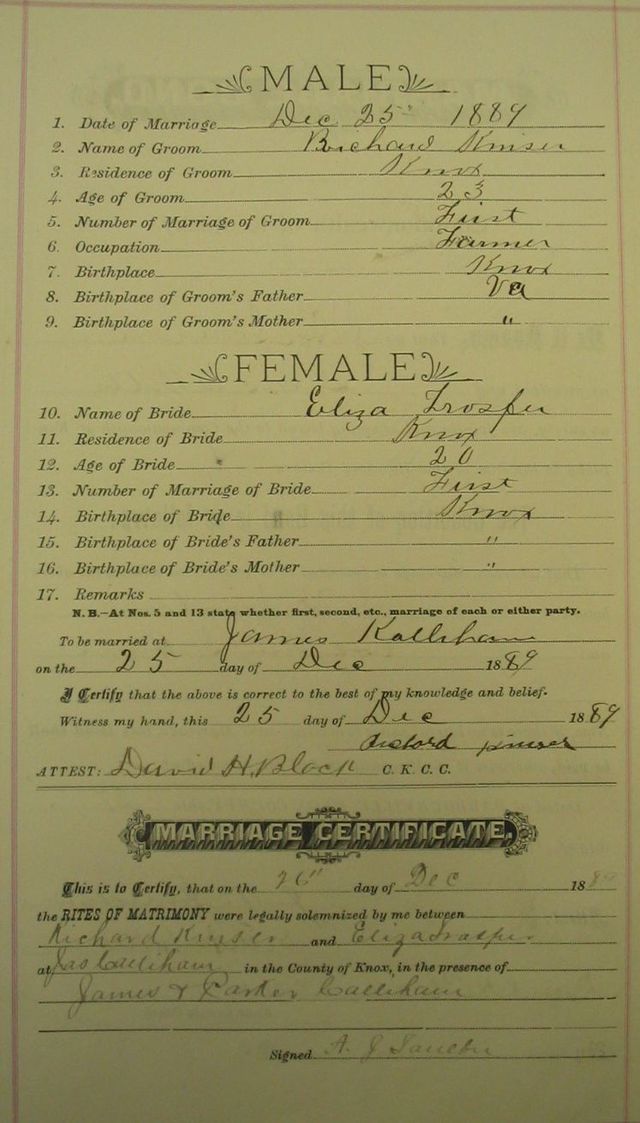 MALE
1. Date of Marriage Dec 25" 1889
2. Name of Groom Richard Kinser
3. Residence of Groom Knox
4. Age of Groom 23
5. Number of Marriage of Groom First
6. Occupation Farmer
7. Birthplace Knox
8. Birthplace of Groom's Father Va
9. Birthplace of Groom's Mother "
FEMALE
10. Name of Bride Eliza Trosper
11. Residence of Bride Knox
12. Age of Bride 20
13. Number of Marriage of Bride First
14. Birthplace of Bride Knox
15. Birthplace of Bride's Father "
16. Birthplace of Bride's Mother "
17. Remarks
N. B.—At Nos. 5 and 13 state whether first, second, etc., marriage of each or either party.
To be married at James Kalliham
on the 25 day of Dec 1889
I Certify that the above is correct to the best of my knowledge and belief.
Witness my hand, this 25 day of Dec 1889
Kinser
ATTEST: David H. Black C. K. C. C.
MARRIAGE CERTIFICATE.
This is to Certify, that on the 26" day of Dec 188
the RITES OF MATRIMONY were legally solemnized by me between
Richard Kinser and Eliza Trosper
at Jas Calliham in the County of Knox, in the presence of
James & Parker Calliham
Signed A. J.